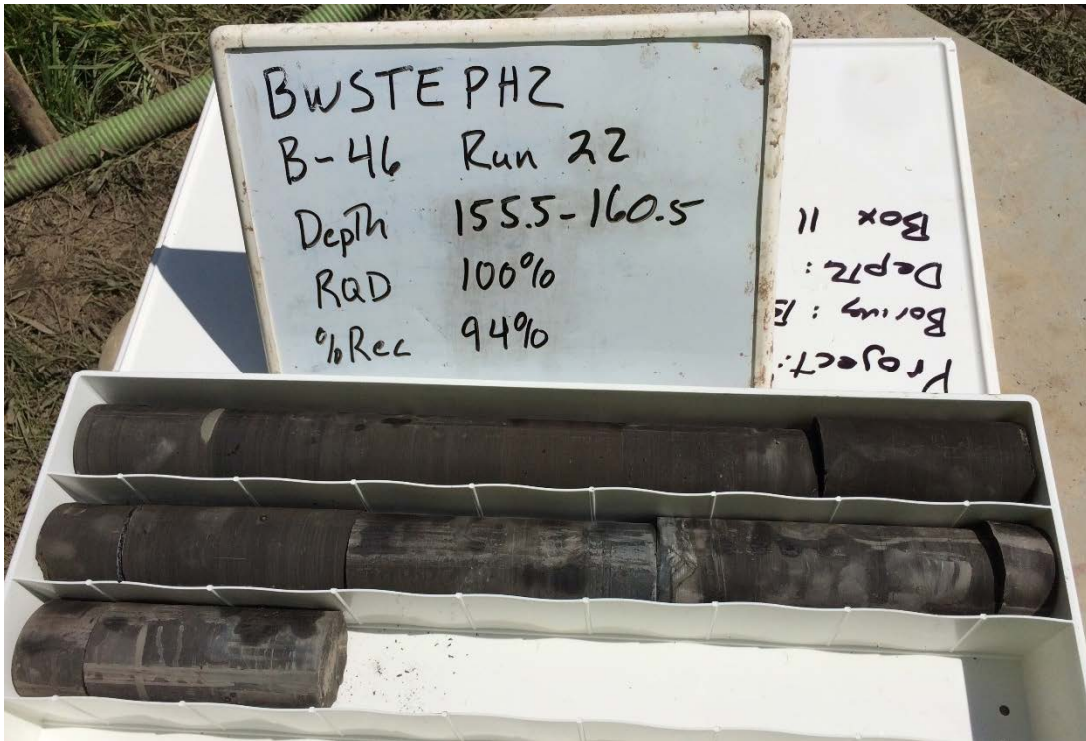 BWSTE PH2
B-46 Run 22
Depth 155.5-160.5
RQD 100%
%Rec 94%
Project:
Boring:
Depth:
Box 11